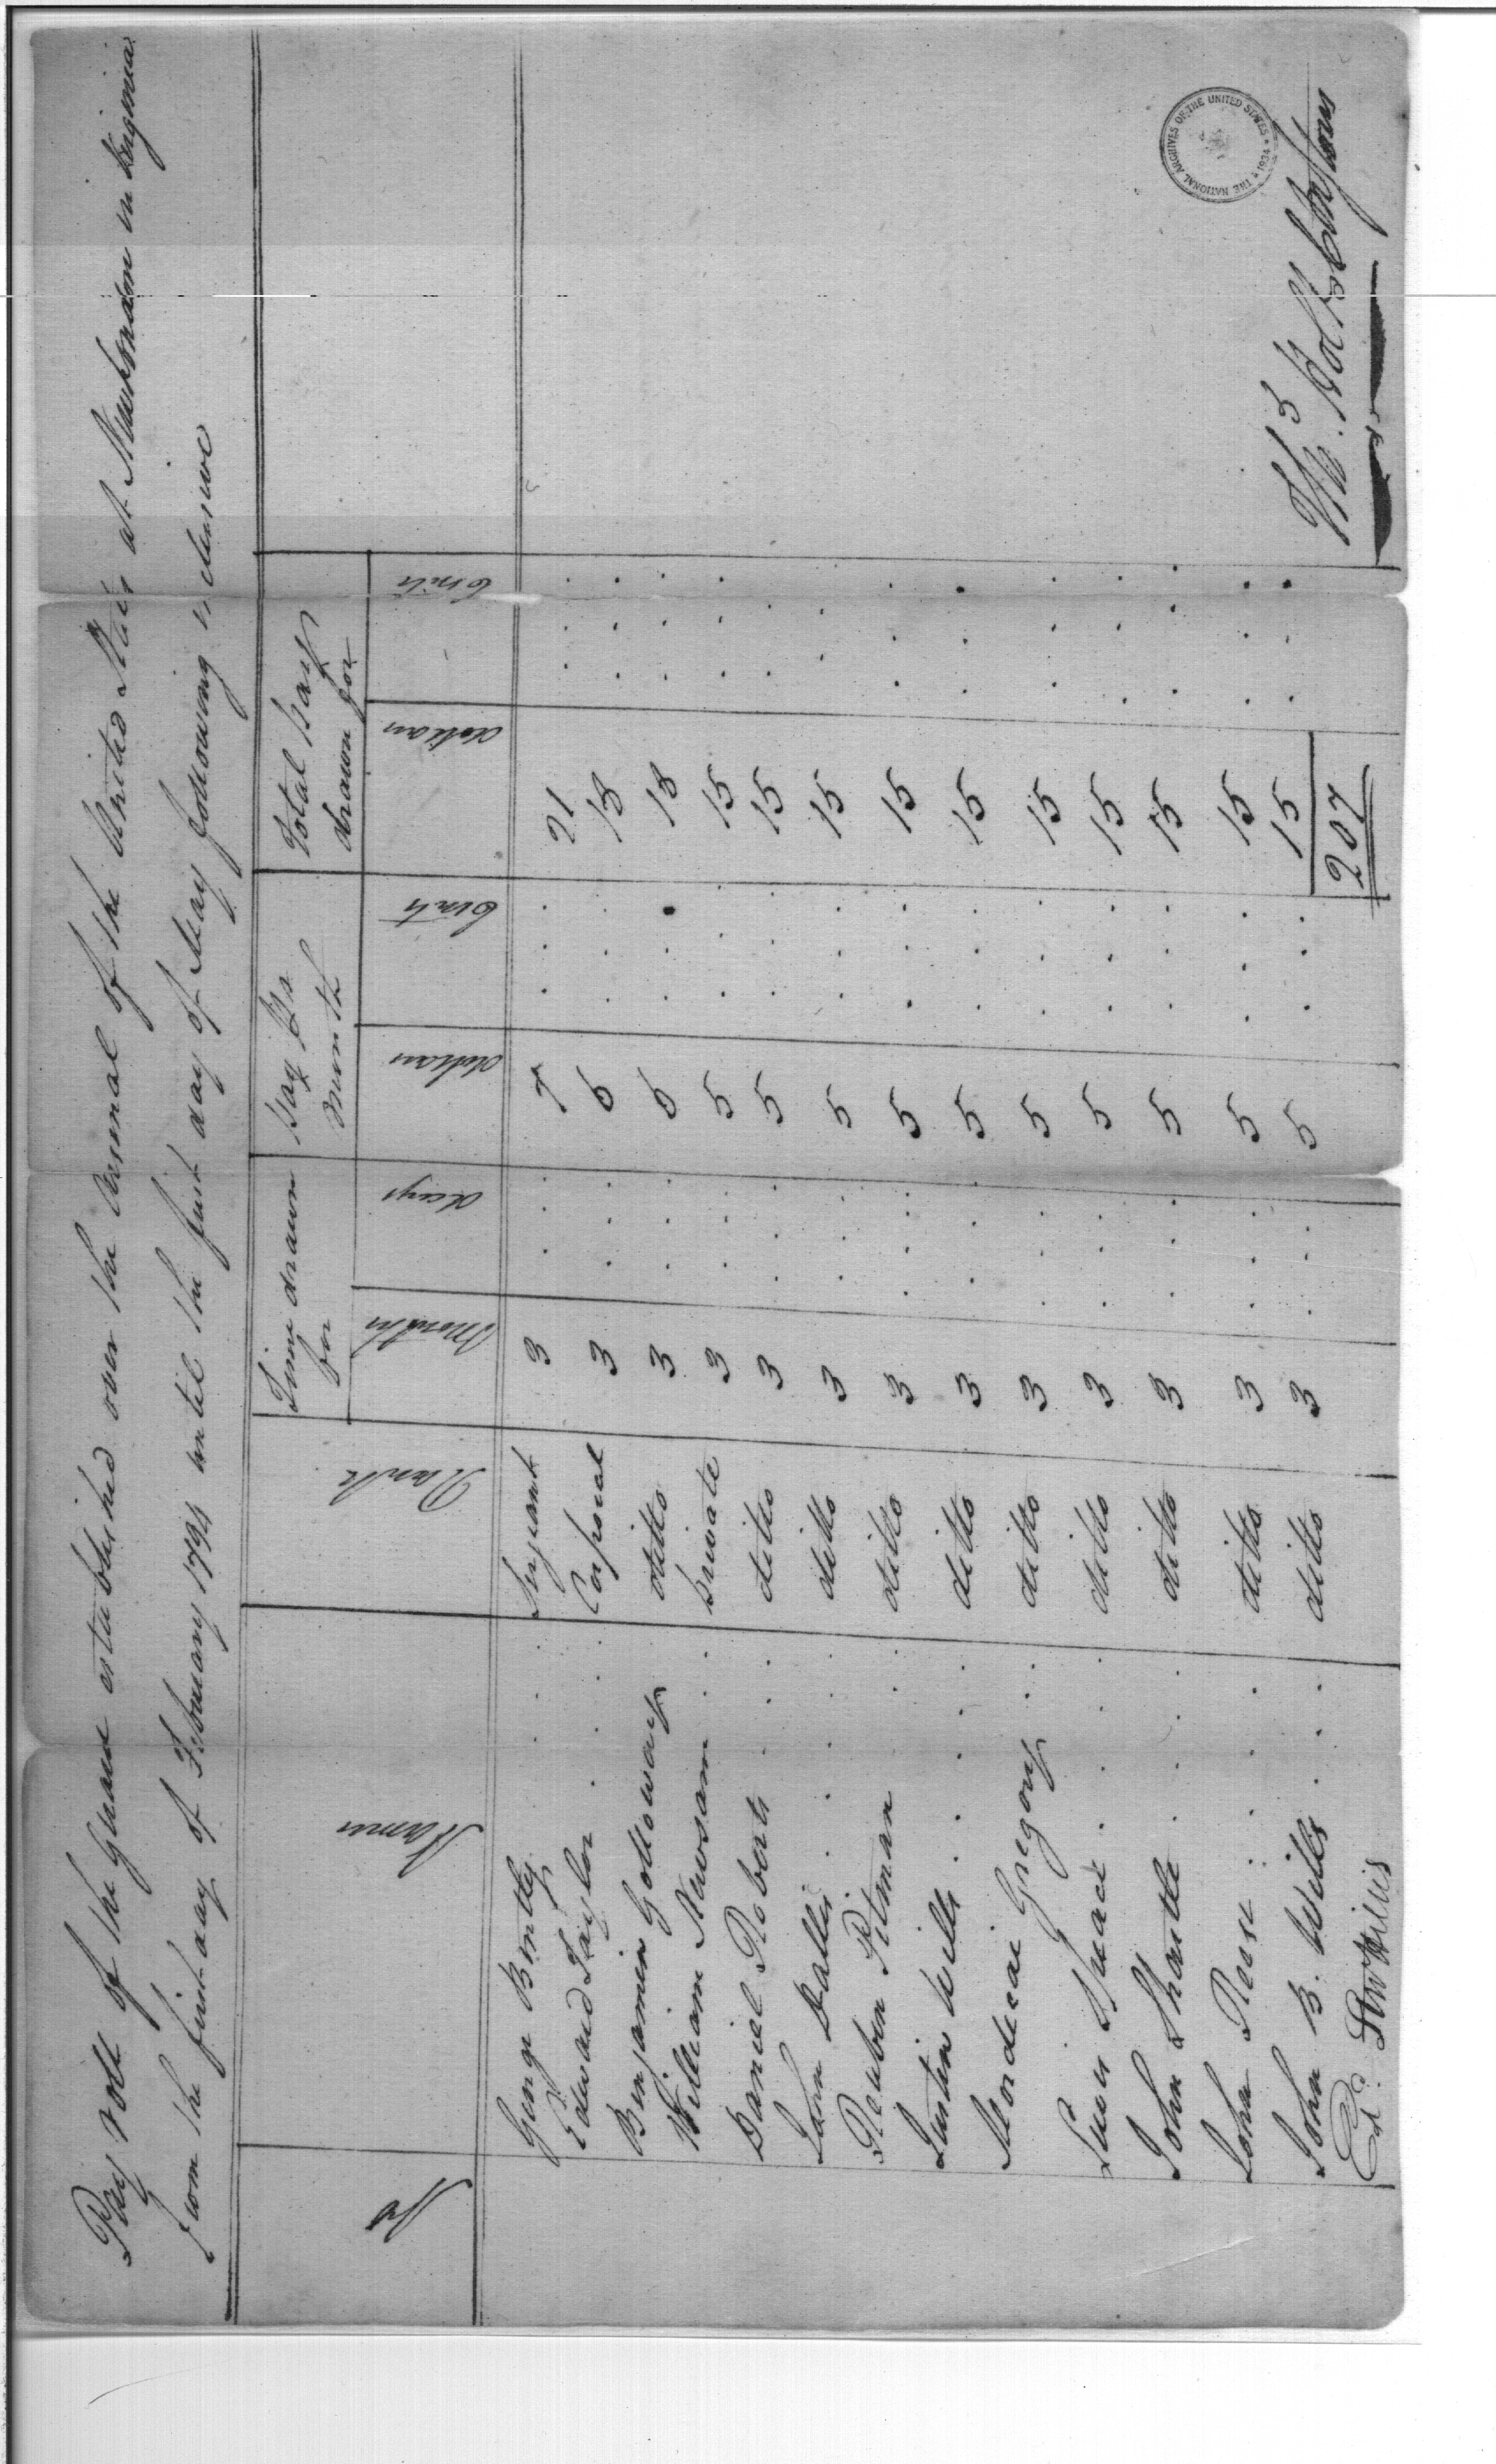 Pay Roll of the Guard established over the Arsenal of the United States at in Virginia
from the first day of February 1794 until the first day of May following inclusive
No Names Rank Time drawn for Pay Pr Month Total pay drawn for
Months Days Dollars Cents Dollars Cents
George Bentley . . Serjeant 3 . . 7 . . . 21 . . .
Edward Taylor . . . Corporal 3 . . . 6 . . . 18 . . .
Benjamin Golloway ditto 3 . . . 6 . . . 18 . . .
William Newsom . . private 3 . . . 5 . . . 15 . . .
Daniel Roberts . . . ditto 3 . . . 5 . . . 15 . . .
John . . . . ditto 3 . . . 5 . . . 15 . . .
Reuben Pitman . . ditto 3 . . . 5 . . . 15 . . .
Wills . . . . ditto 3 . . . 5 . . . 15 . . .
Mordecai Gregory . . ditto 3 . . . 5 . . . 15 . . .
. . . . ditto 3 . . . 5 . . . 15 . . .
John . . . . ditto 3 . . . 5 . . . 15 . . .
John . . . . ditto 3 . . . 5 . . . 15 . . .
John B. Wills . . . ditto 3 . . . 5 . . . 15 . . .
207
THE NATIONAL ARCHIVES OF THE UNITED STATES 1934